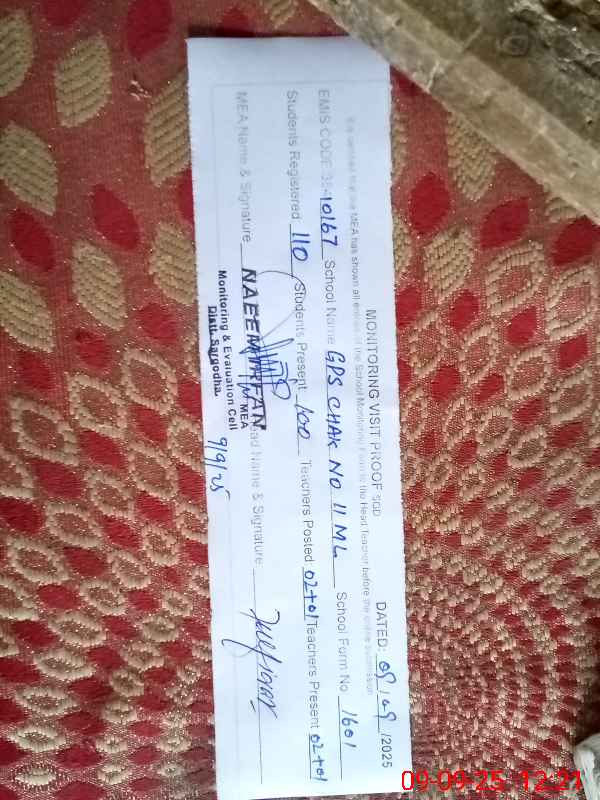 MONITORING VISIT PROOF SGD
DATED: 09/09/2025
It is certified that the MEA has shown all entries of the School Monitoring Form to the Head Teacher before the online submission
EMIS CODE 38410167 School Name GPS CHAK NO 11 ML School Form No 1601
Students Registered 110 Students Present 100 Teachers Posted 02+01 Teachers Present 02+01
MEA Name & Signature Head Name & Signature
NAEEM IRFAN
MEA
Monitoring & Evaluation Cell
Distt. Sargodha.
9/9/25
09-09-25 12:21